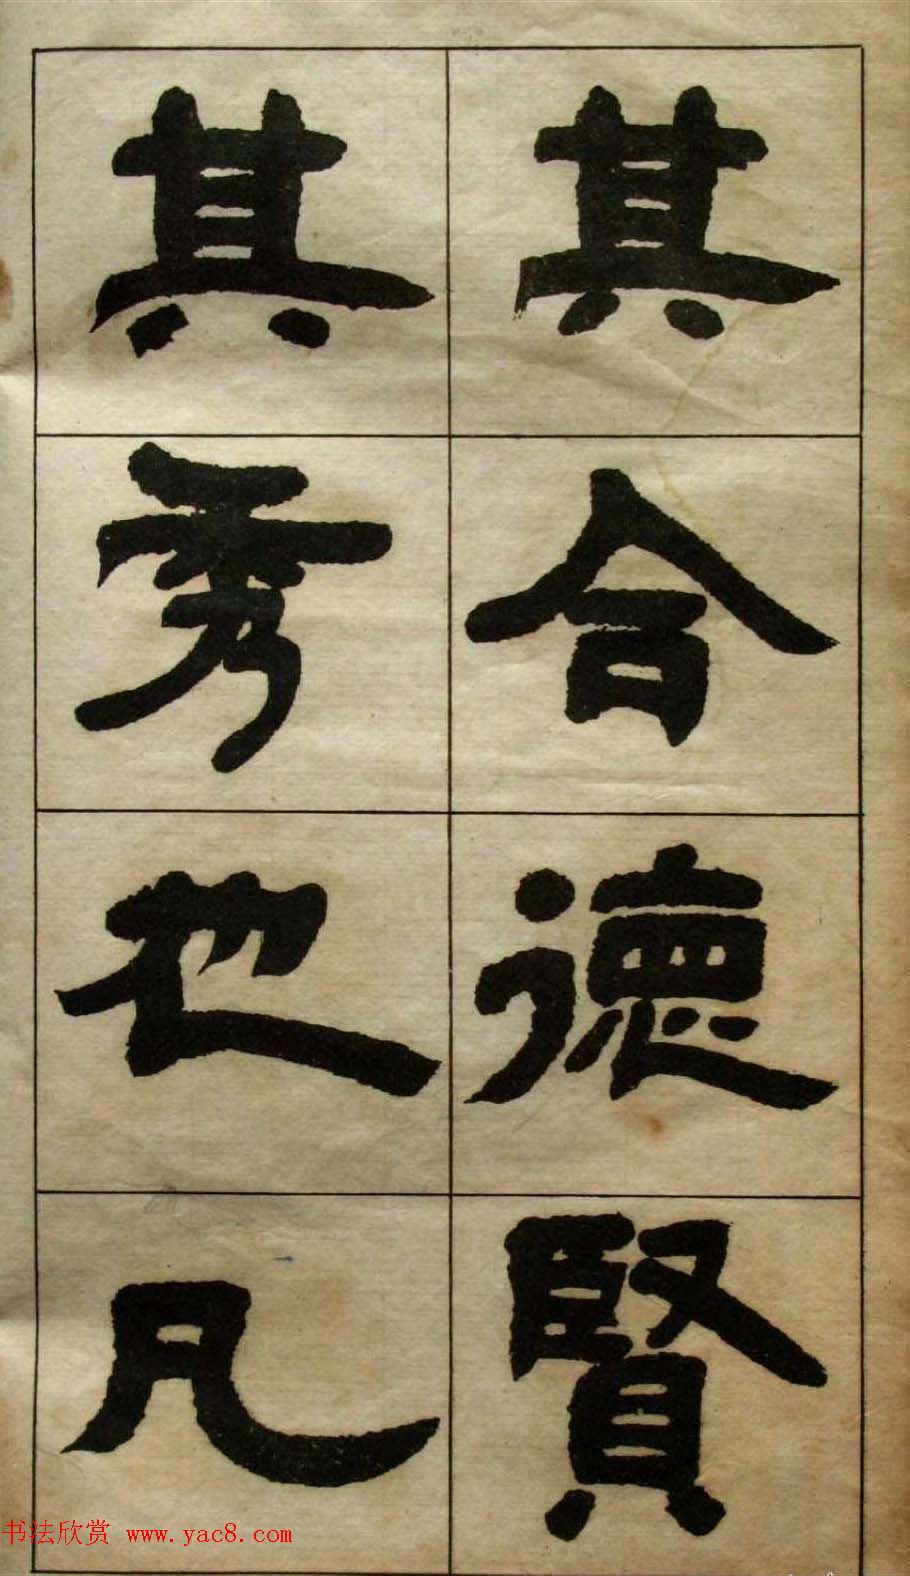 其合德賢
其秀也凡
书法欣赏 www.yac8.com